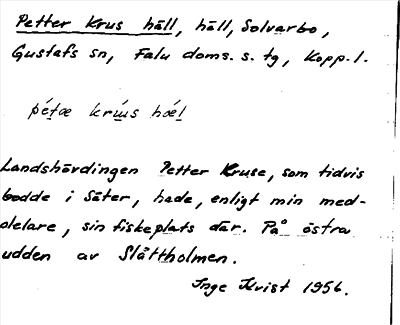 Petter Krus häll, häll, Solvarbo,
Gustafs sn, Falu doms. s. tg, Kopp. l.
pétæ krús hǽl
Landshövdingen Petter Kruse, som tidvis
bodde i Säter, hade, enligt min med-
delare, sin fiskeplats där. På östra
udden av Slättholmen.
Inge Kvist 1956.